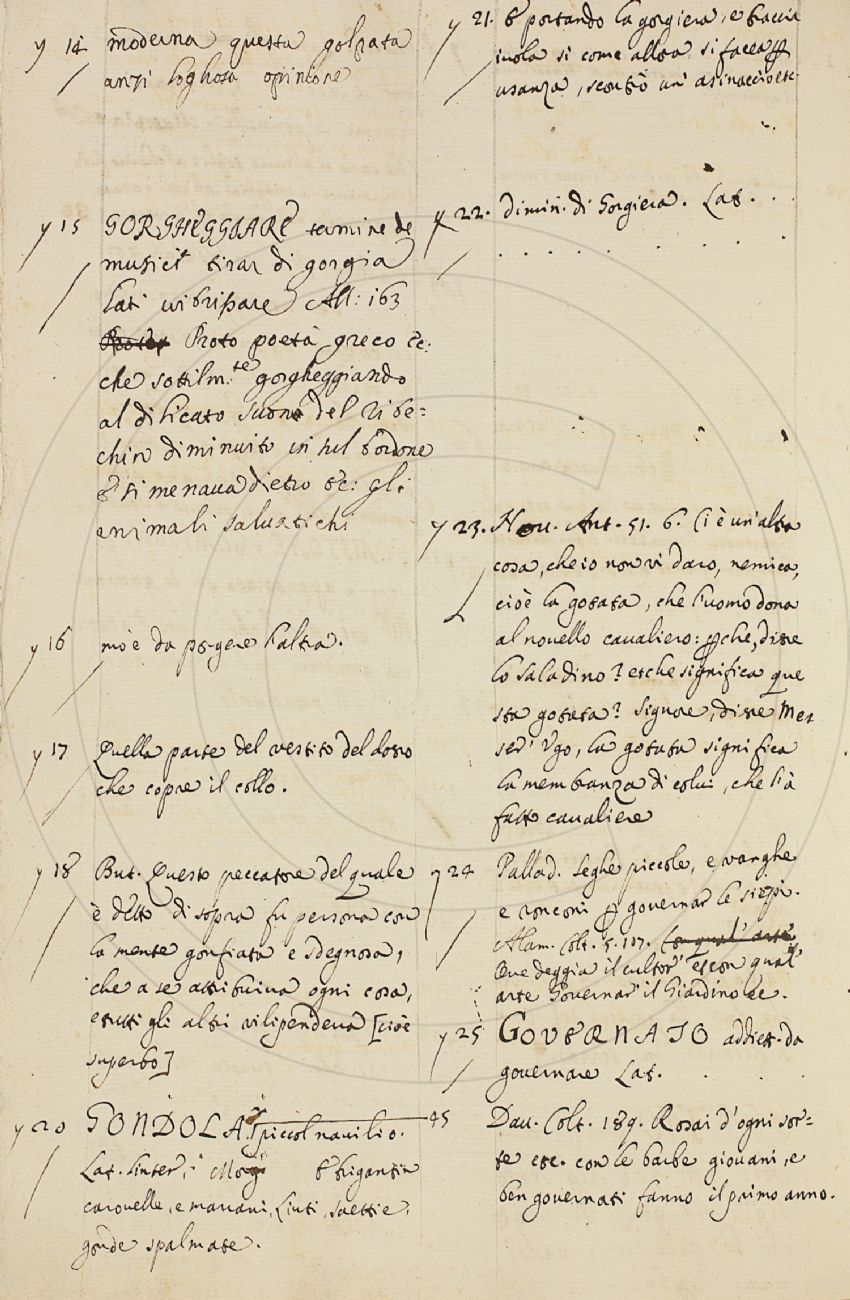 y 14 moderna questa golpata
anzi loghosa opinione
y 15 GORGHEGGIARE termine de
musici tirar di gorgia
Lati vibrissare All: 163
Proto poeta greco &c:
che sottilm.te gorgheggiando
al dilicato suono del ribe=
chin diminuito in sul bordone
si menava dietro &c: gli
animali salvatichi
y 16 mo è da porgere l'altra.
y 17 Quella parte del vestito del dosso
che copre il collo.
y 18 But. Questo peccatore del quale
è detto di sopra fu persona con
la mente gonfiata e sdegnosa,
che a se attribuiva ogni cosa,
e tutti gli altri vilipendeva [cioè
superbo]
y 20 GONDOLA piccol navilio.
Lat. linter, Morg brigantin
carovelle, e marrani, liuti, saettie,
gonde spalmate.
y 21. E portando la gorgiera, e braccia
iuola si come allora si facea p
usanza, scontrò un' asinaccio etc
y 22. dimin. di Gorgiera. Lat. . .
. . . . . . . .
y 23. Nov. Ant. 51. 6. Ci è un'altra
cosa, che io non vi daro, nemica,
cioè la gotata, che l'uomo dona
al novello cavaliero: pche, disse
lo Saladino? et che significa que
sta gotata? Signore, disse Mes
ser' Ugo, la gotata significa
la membranza di colui, che l'à
fatto cavaliere
y 24 Pallad. Seghe piccole, e vanghe
e ronconi p governar le siepi.
Alam. Colt. 5. 117. Con qual' arte
Ove deggia il cultor' et con qual'
arte Governar' il Giardino &c.
y 25 GOVERNATO addiett. da
governare Lat. . .
45 Dav. Colt. 189. Rosai d'ogni sor=
te etc. con le barbe giovani, e
ben governati fanno il primo anno.